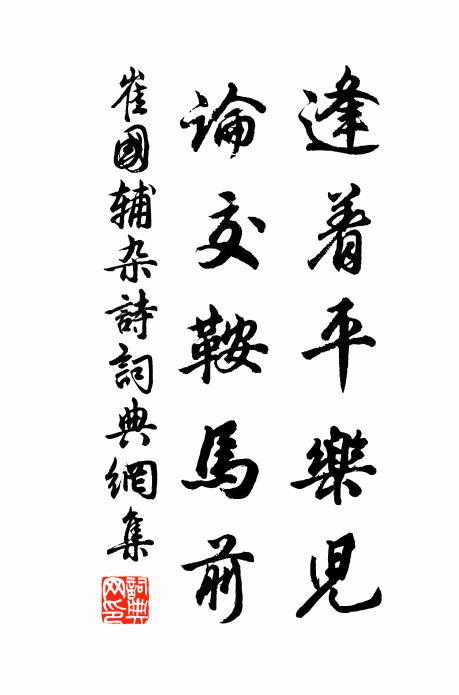 逢着平樂兒
論交鞍馬前
崔國辅杂詩詞典網集
詞典网印